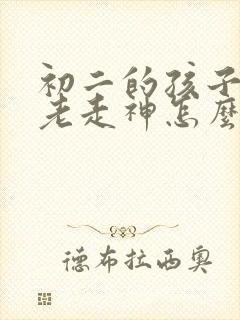 初二的孩子
老走神怎麼
德布拉西奥